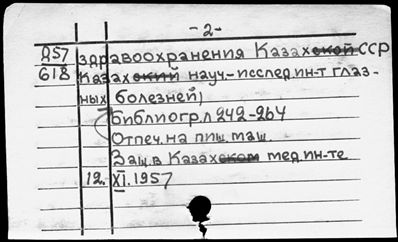 -2-
Д57 здравоохранения Казахской ССР
618 Казахский науч.-исслед ин-т глаз-
ных болезней)
Библиогр.л 242-264
Отпеч. на пиш. маш.
Защ. в Казахском мед. ин-те
12. XI. 1957